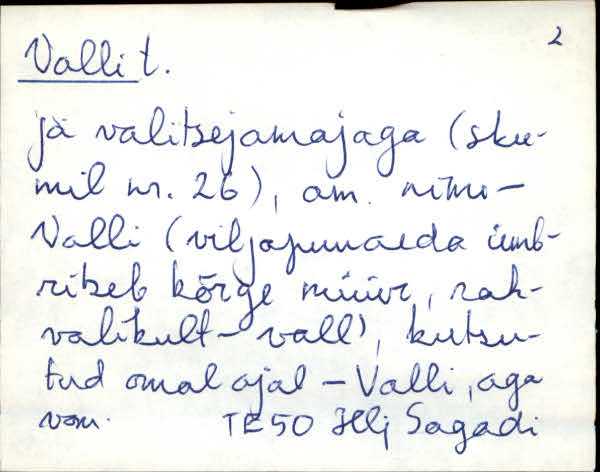 2
Valli t.
ja valitsejamajaga (sku-
mil nr. 26), am. nimi -
Valli (viljapuuaeda ümb-
ritseb kõrge müür, rah-
valikult - vall), kutsu-
tud omal ajal - Valli, aga
van. TE50 Hlj Sagadi